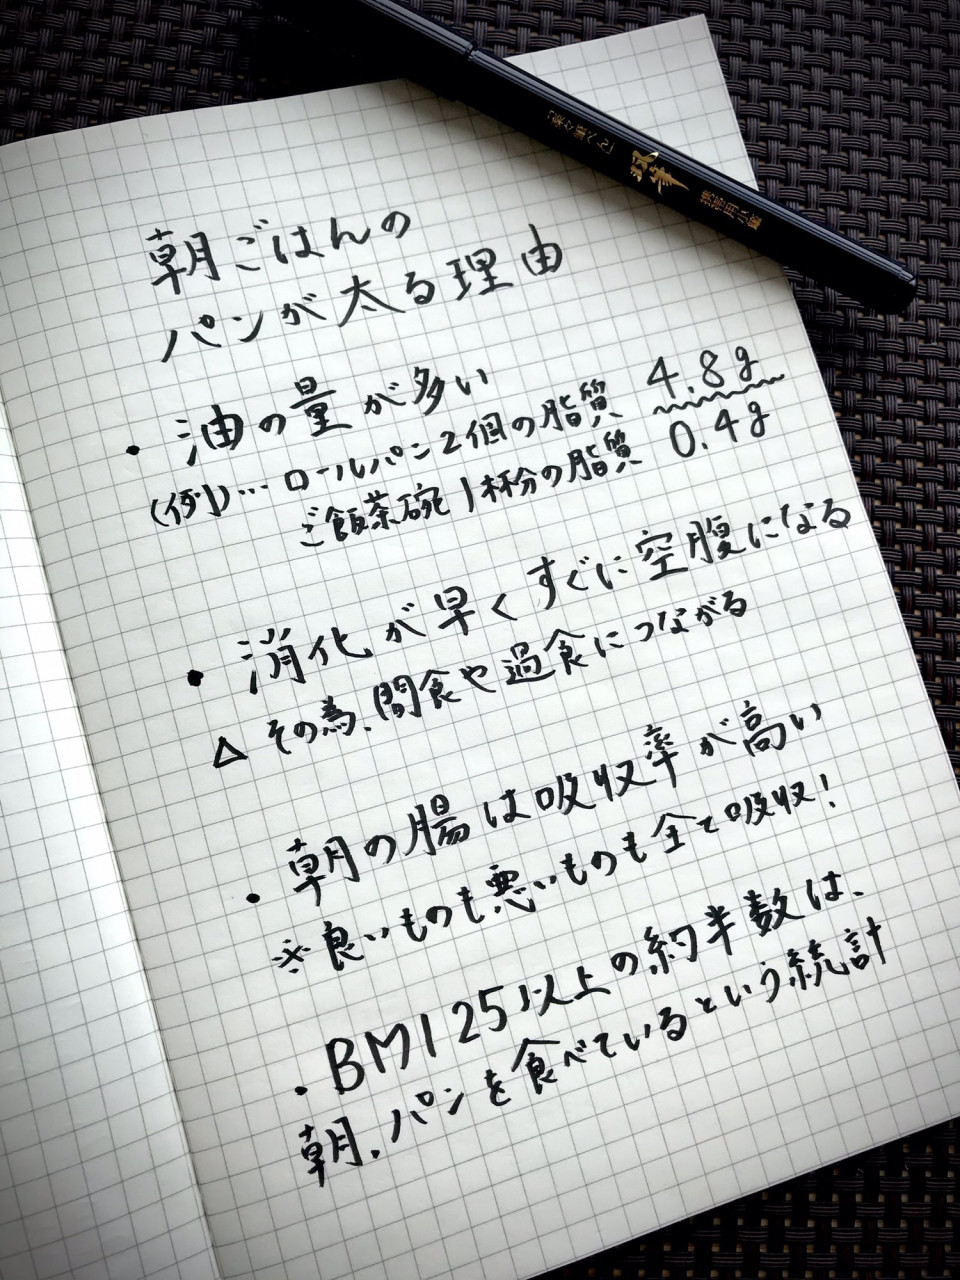 朝ごはんの
パンが太る理由
・油の量が多い
(例)… ロールパン2個の脂質 4.8g
ご飯茶碗1杯分の脂質 0.4g
・消化が早くすぐに空腹になる
△ その為、間食や過食につながる
・朝の腸は吸収率が高い
※良いものも悪いものも全て吸収!
・BMI 25以上の約半数は、
朝、パンを食べているという統計
携帯用小筆